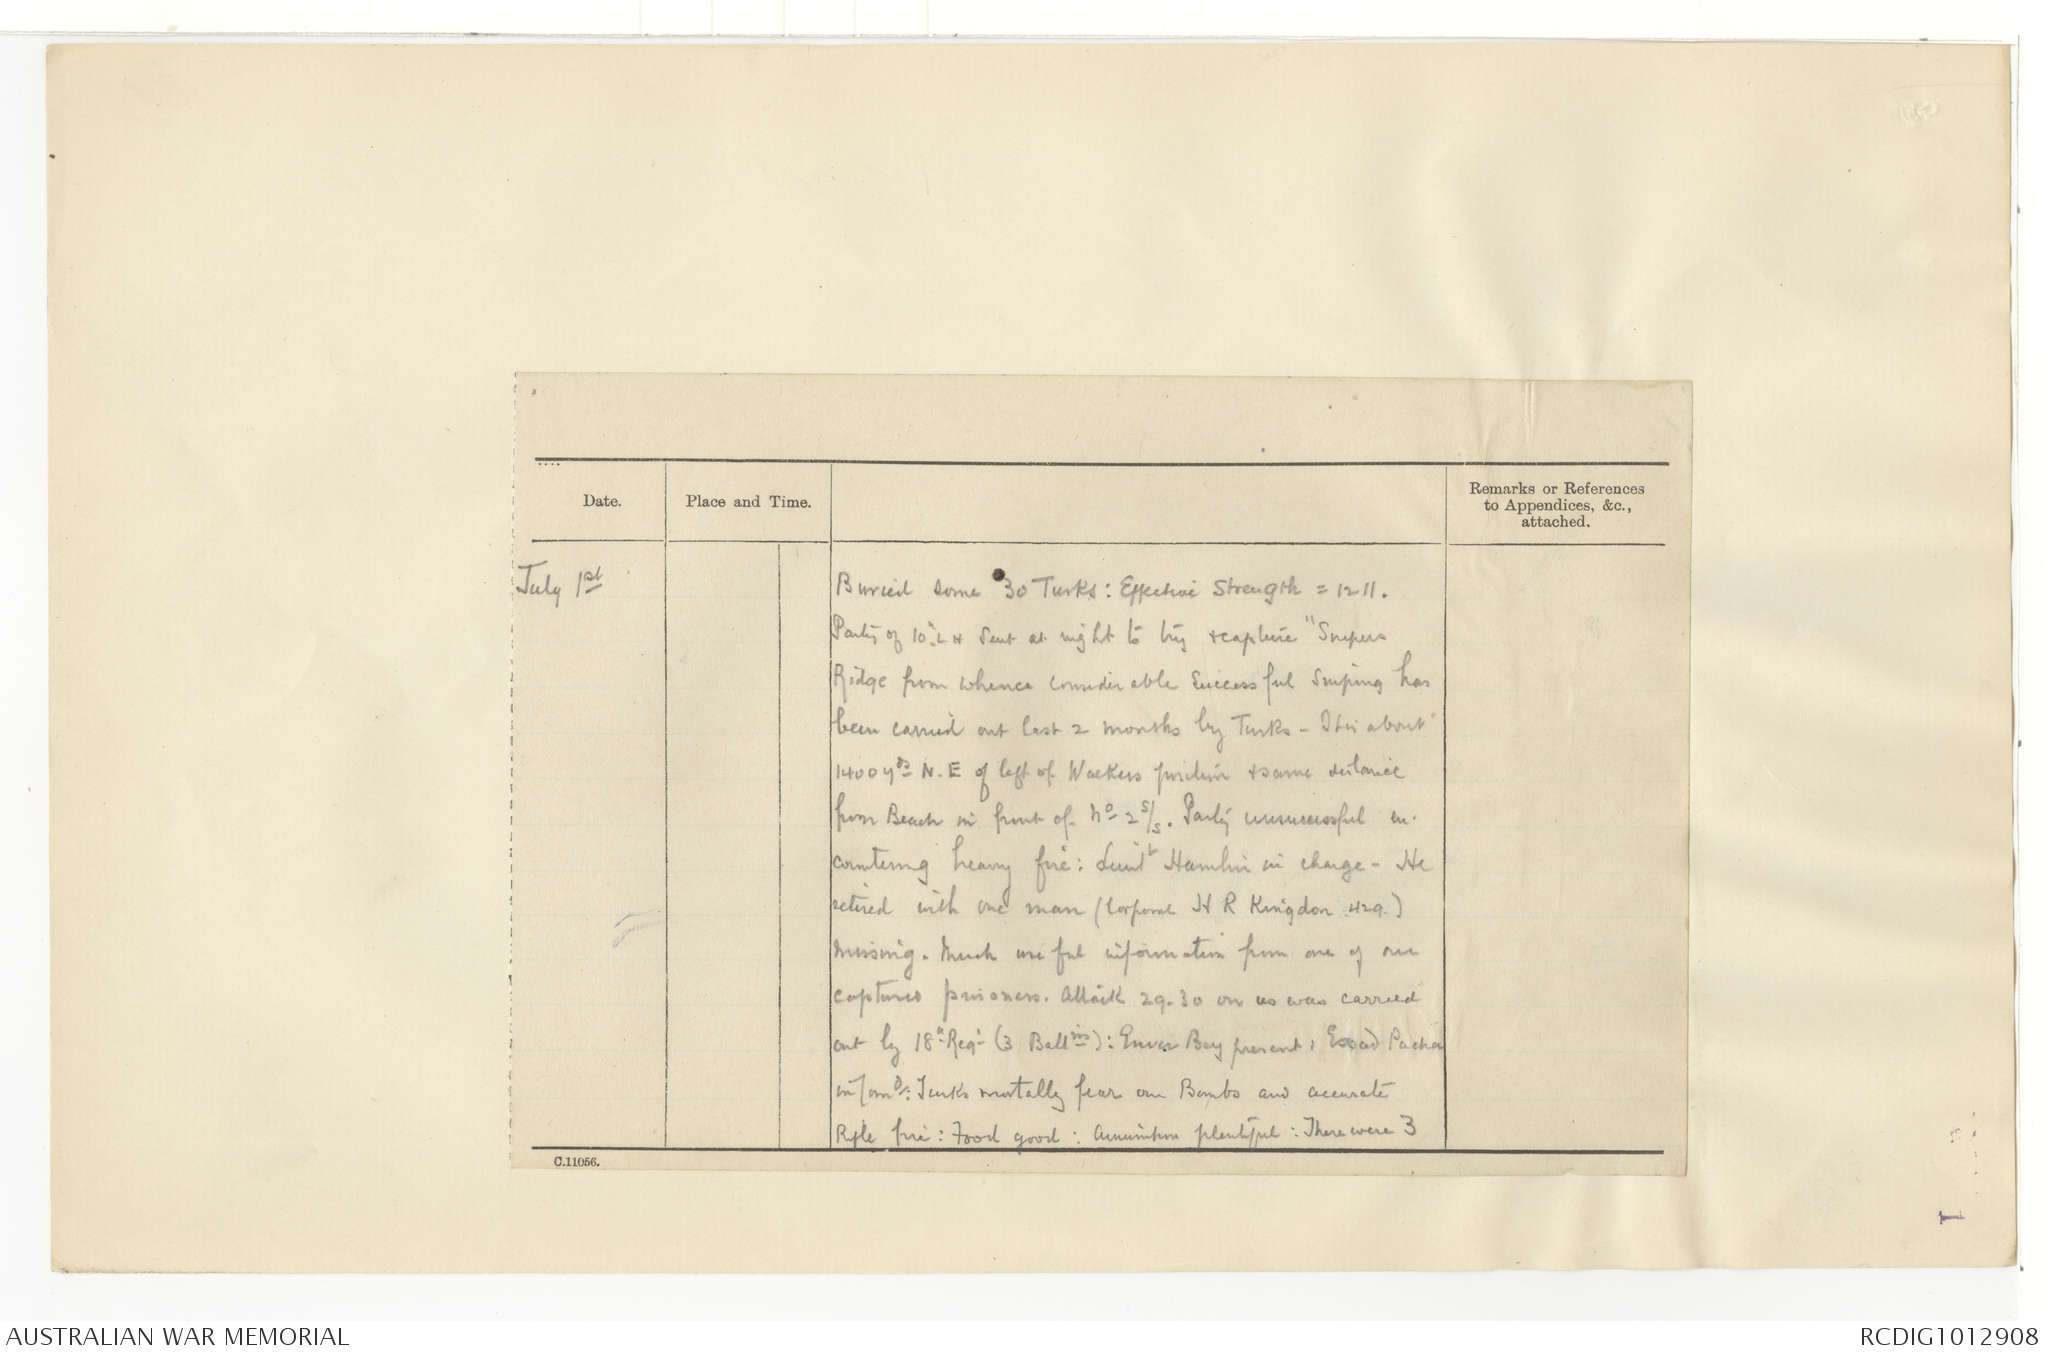 Date.
Place and Time.
Remarks or References
to Appendices, &c.,
attached.
July 1st
Buried some 30 Turks: Effective Strength = 1211.
Party of 10th L H sent at night to try & capture "Snipers
Ridge from whence considerable successful sniping has
been carried out last 2 months by Turks - It is about
1400 yds N.E of left of Walkers position & same distance
from Beach in front of No 2 S/S. Party unsuccessful en-
countering heavy fire: Lieut Hamlin in charge - He
retired with one man (Corporal H R Kingdon 429.)
missing. Much useful information from one of our
captured prisoners. Attack 29-30 on us was carried
out by 18th Regt (3 Battns): Enver Bey present: Essad Pacha
in Comd: Turks mortally fear our Bombs and accurate
Rifle fire: Food good: Ammunition plentiful: There were 3
C.11056.
1
AUSTRALIAN WAR MEMORIAL
RCDIG1012908